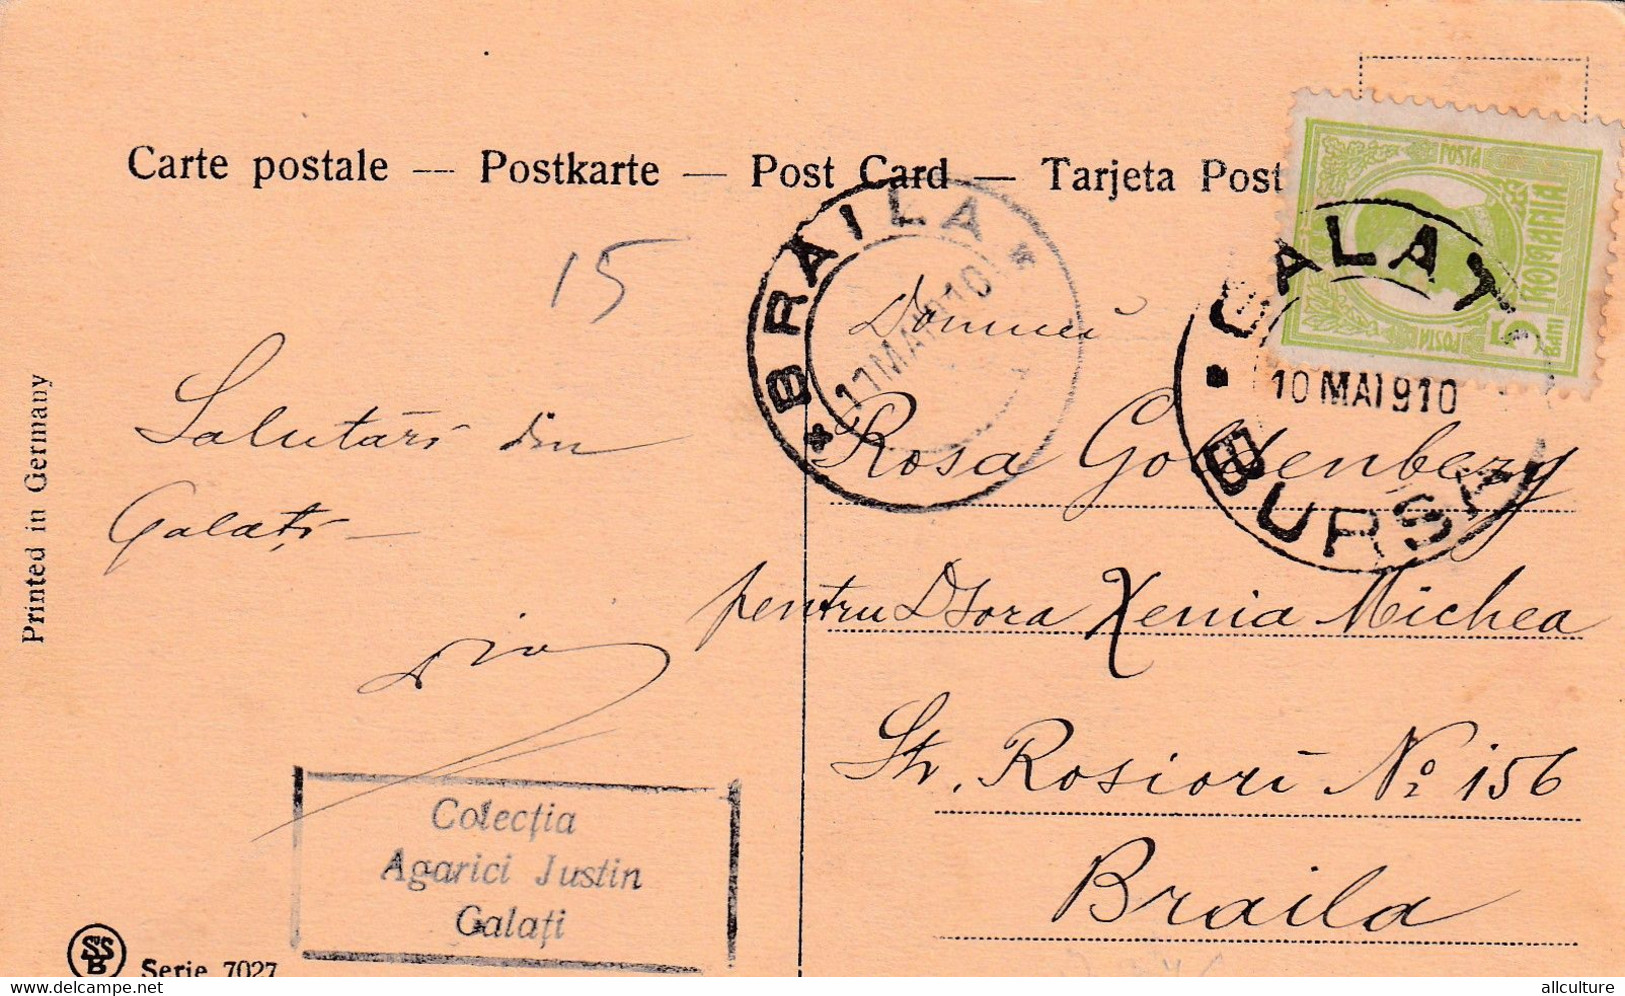 Carte postale — Postkarte — Post Card — Tarjeta Post
POSTA
ROMANIA
5
BANI
POSTA
GALATI
10 MAI 910
BURSA
BRAILA
11 MAI 910
15
Salutări din
Galați —
Domnei
Rosa Goldenberg
pentru Dsora Xenia Michea
Str. Rosiori No 156
Braila
Colecția
Agarici Justin
Galați
Printed in Germany
SSB
Serie 7027
delcampe.net
allculture